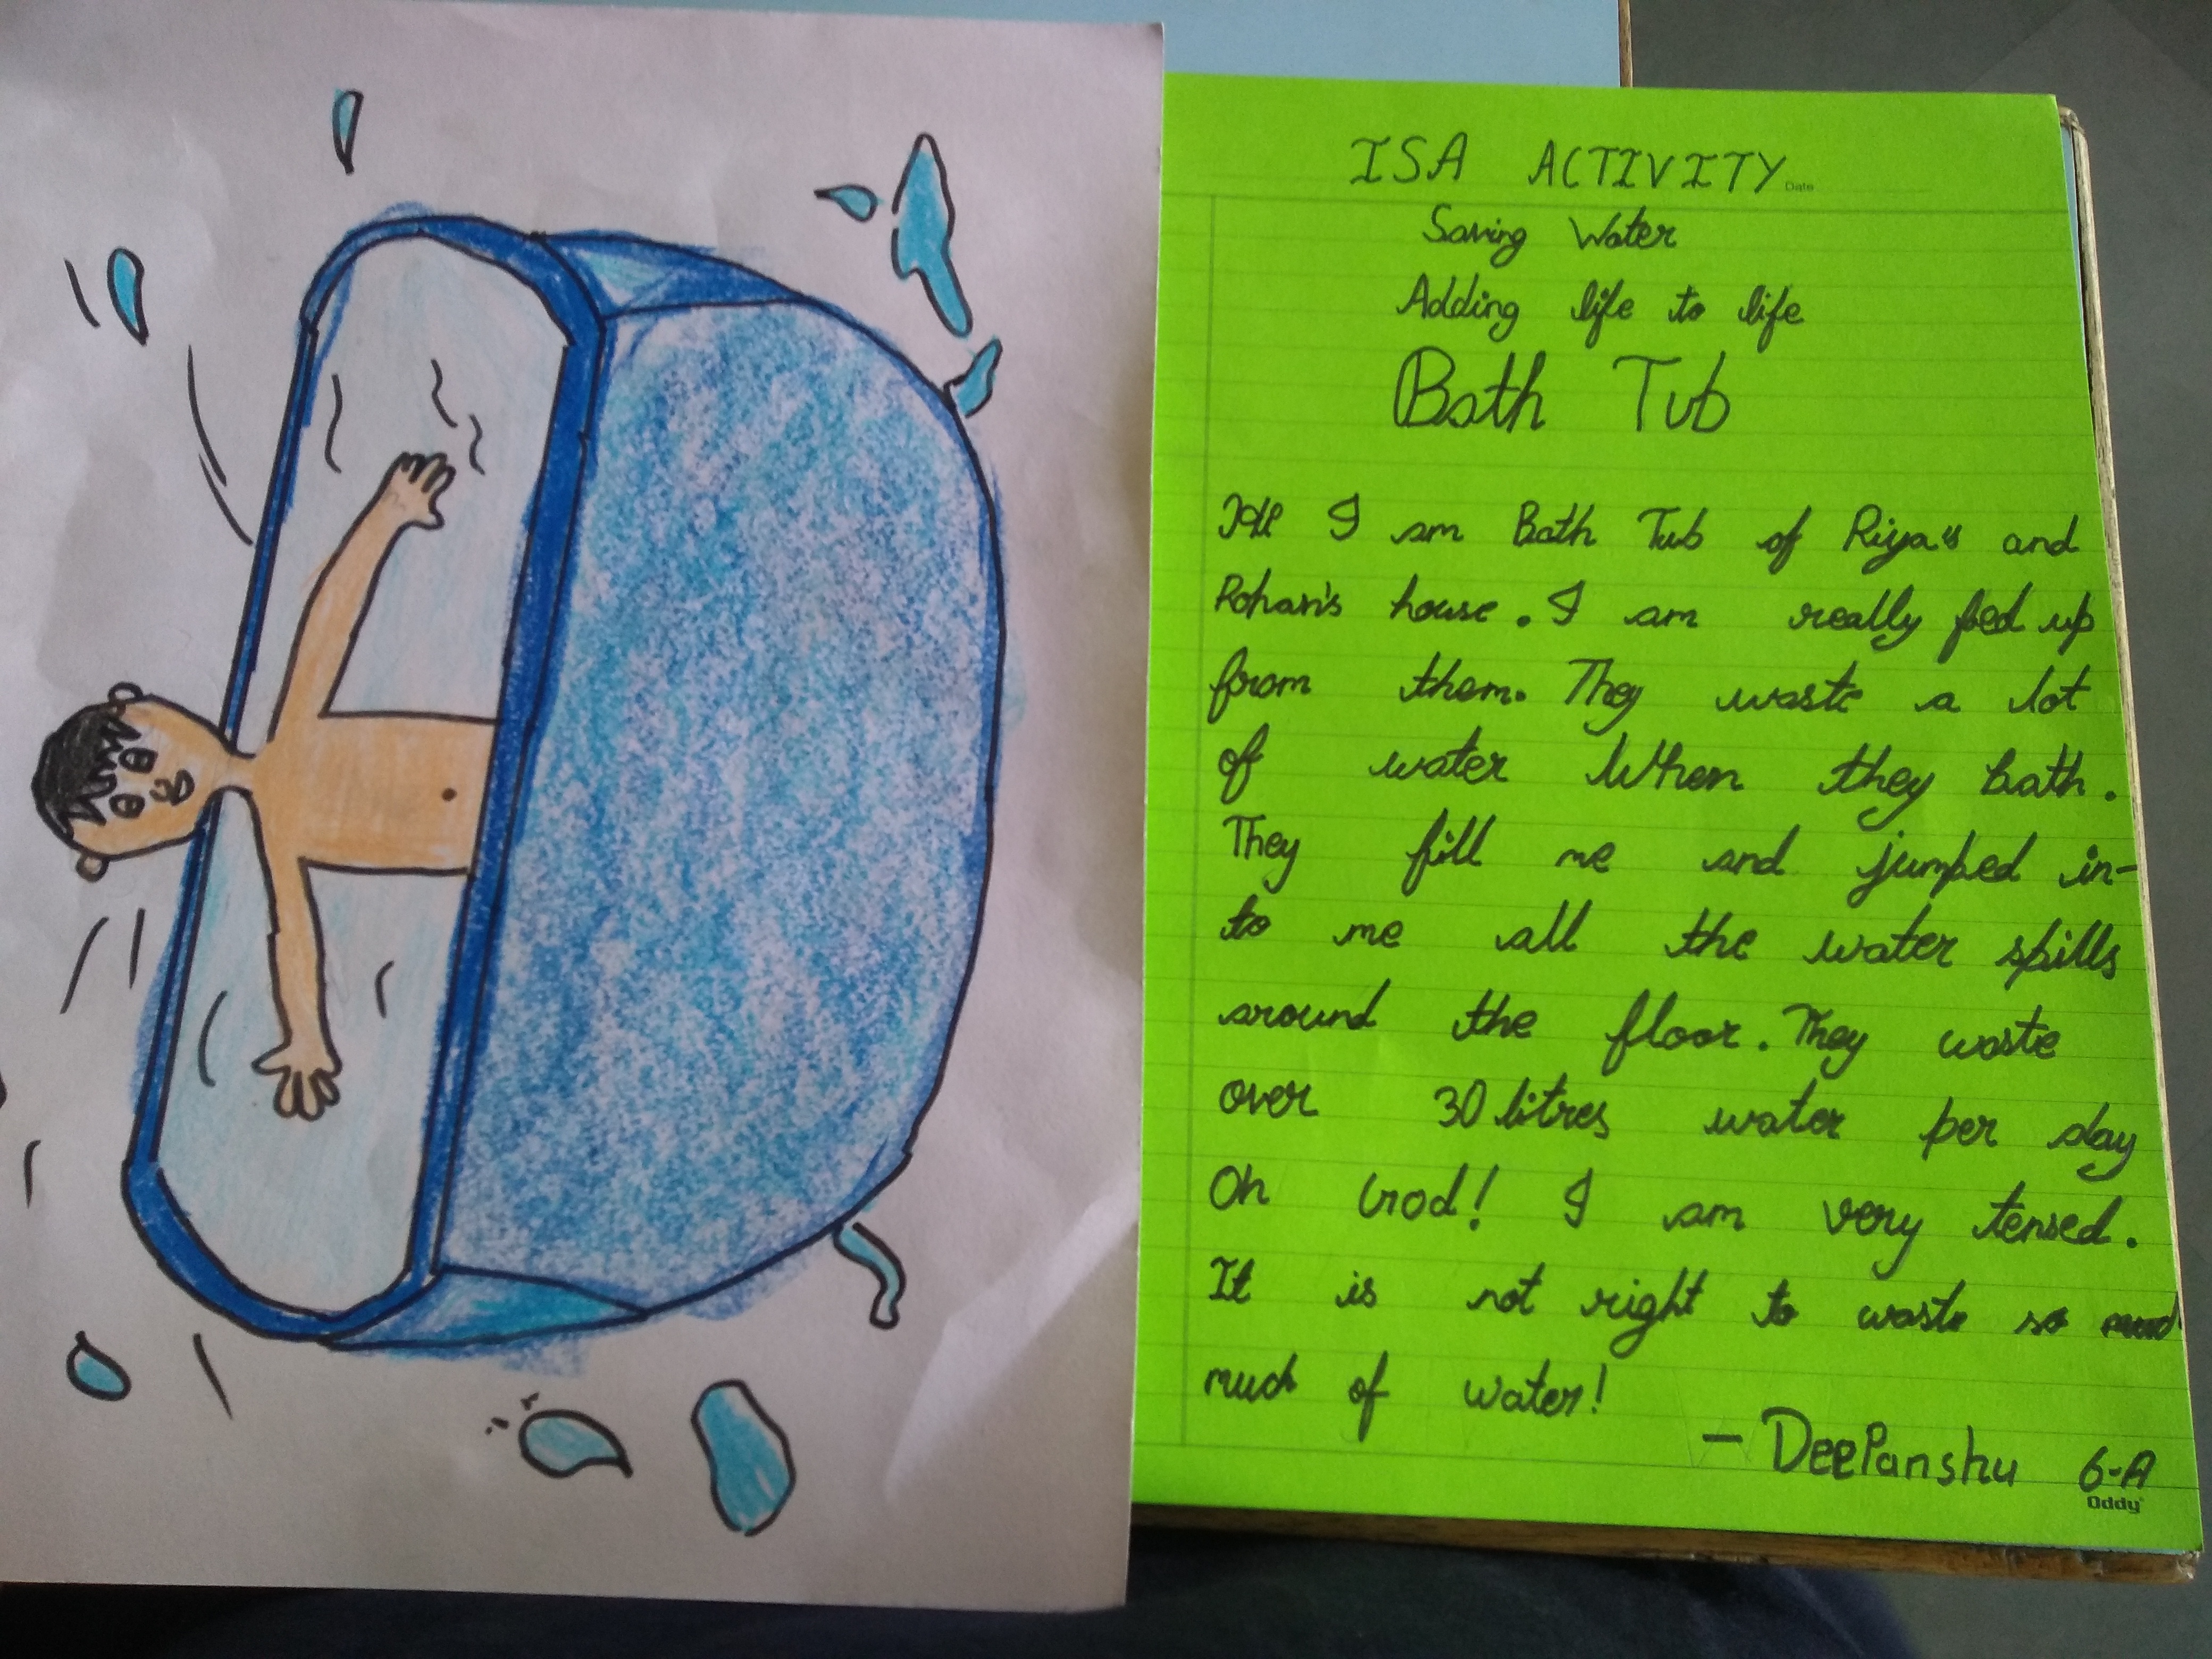 ISA ACTIVITY
Date
Saving Water
Adding life to life
Bath Tub
I am Bath Tub of Riya's and
Rohan's house. I am really fed up
from them. They waste a lot
of water When they bath.
They fill me and jumped in-
to me all the water spills
around the floor. They waste
over 30 litres water per day
Oh God! I am very tensed.
It is not right to waste so
much of water!
- DeePanshu 6-A
Oddy